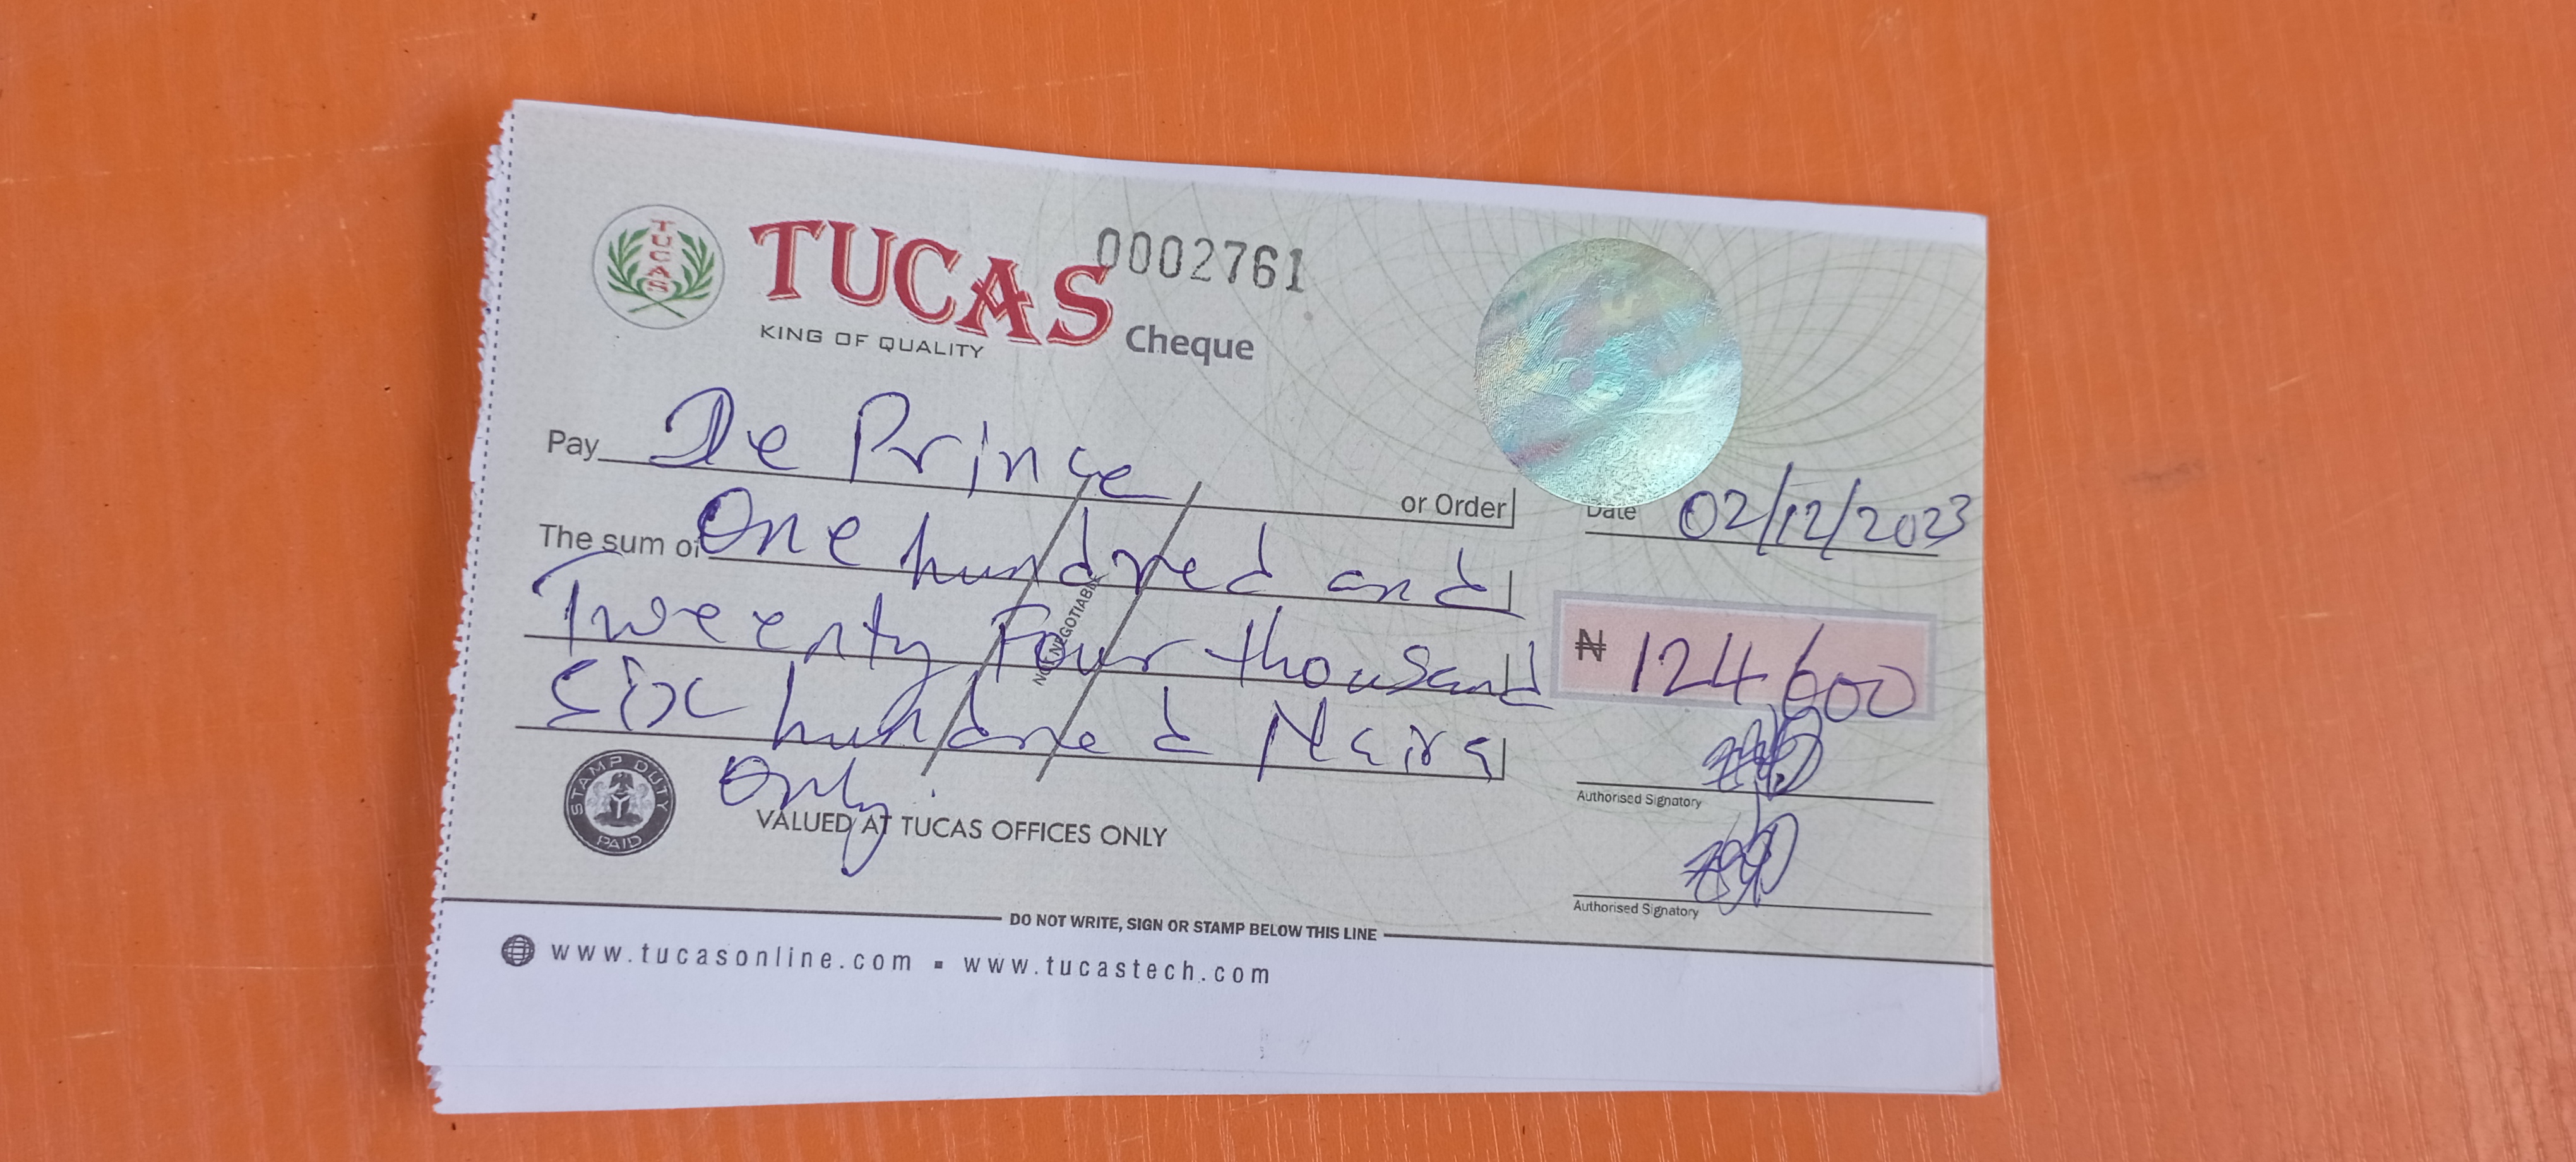 TUCAS
TUCAS 0002761
KING OF QUALITY Cheque
Pay De Prince or Order
Date 02/12/2023
The sum of One hundred and
Tweenty Four thousand
₦ 124,600
Six hundred Naira
only.
NOT NEGOTIABLE
Authorised Signatory
STAMP DUTY PAID
VALUED AT TUCAS OFFICES ONLY
Authorised Signatory
DO NOT WRITE, SIGN OR STAMP BELOW THIS LINE
www.tucasonline.com ▪ www.tucastech.com